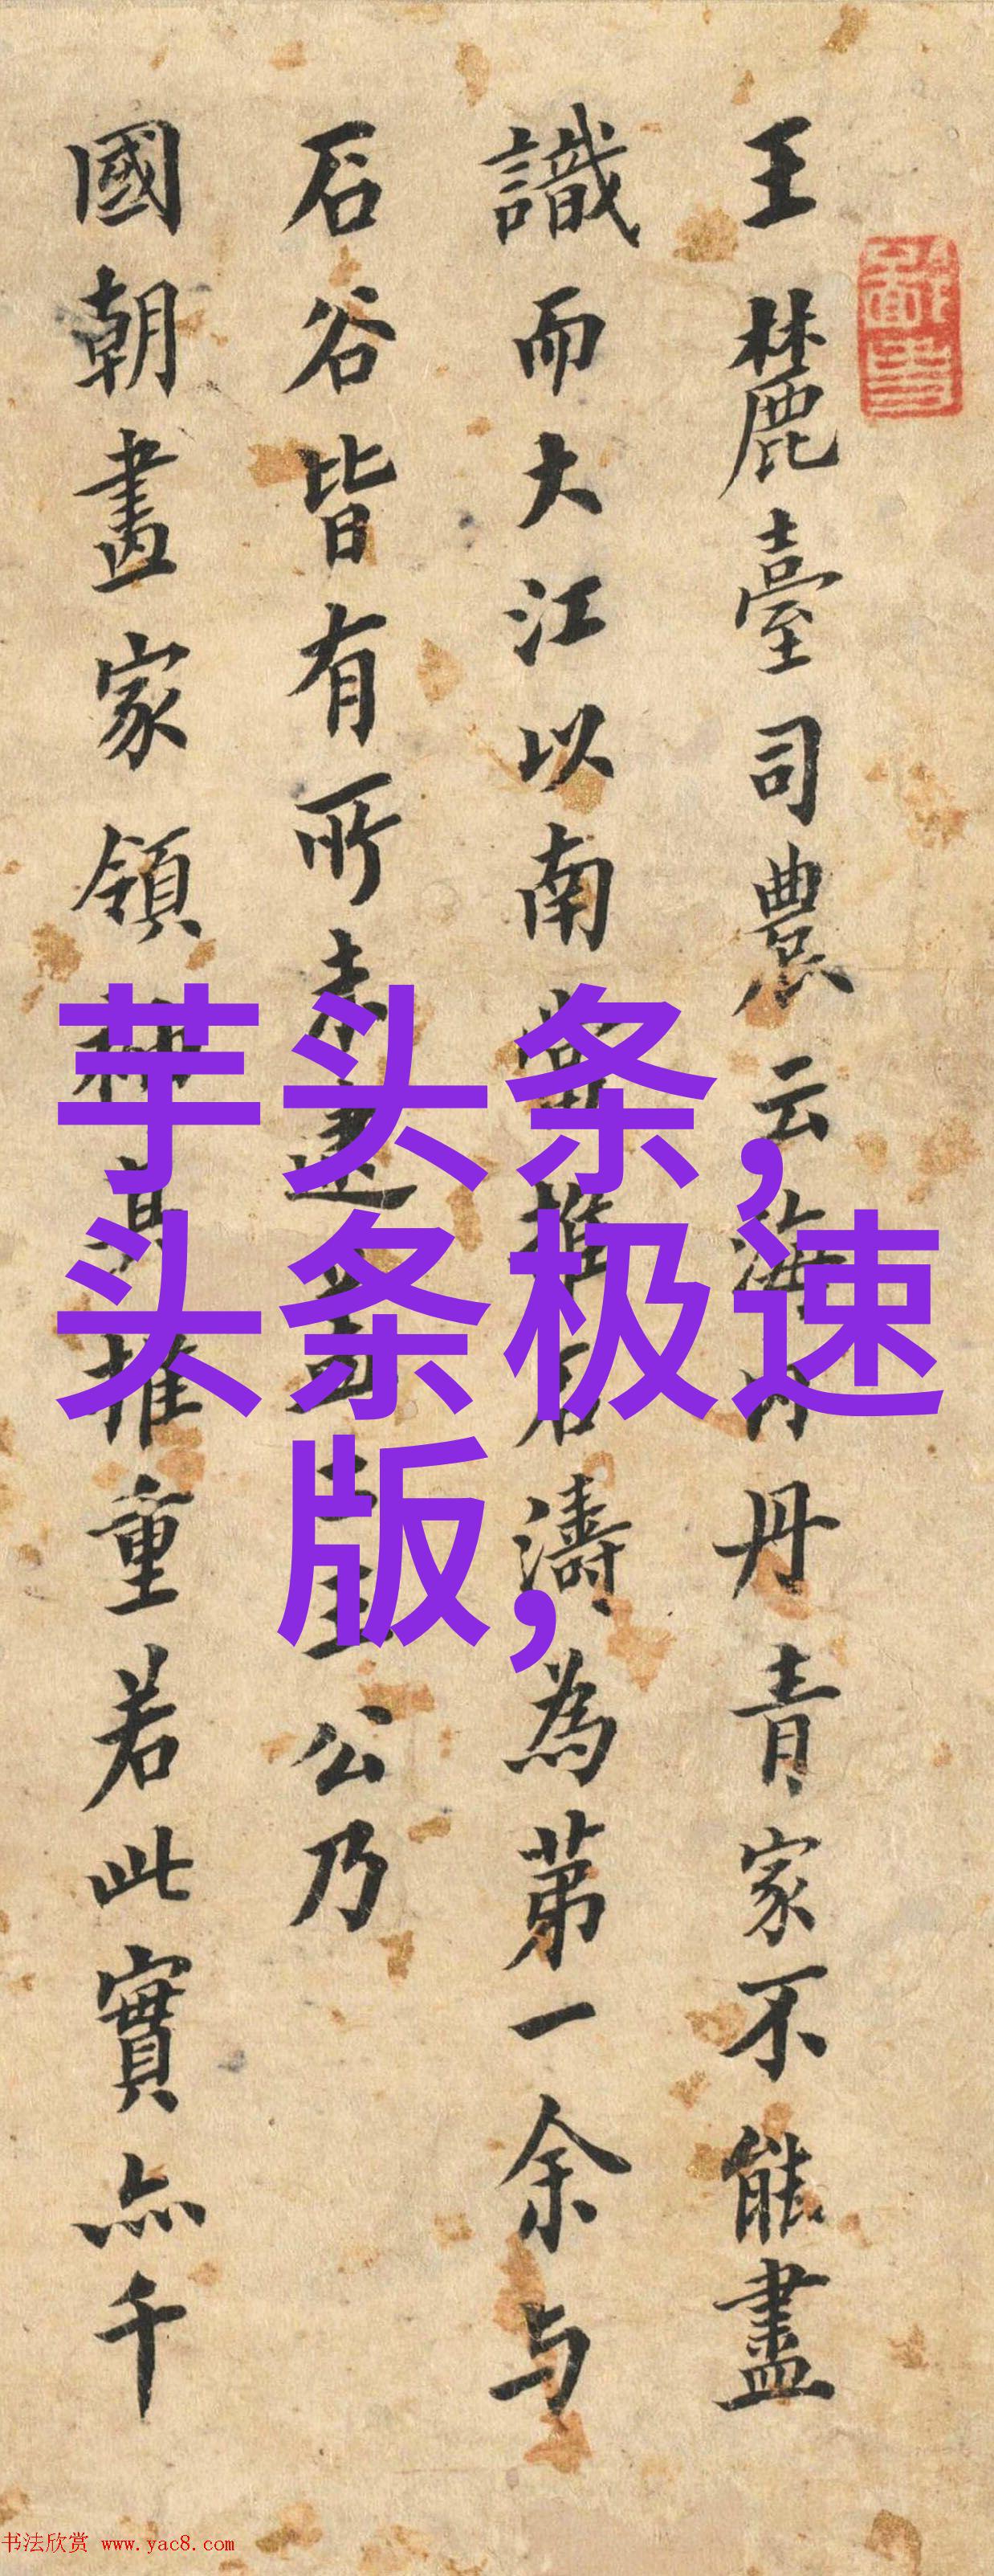 王麓臺司農云海內丹青家不能盡
識而大江以南當推石濤為第一余与
石谷皆有所未逮
公乃
國朝畫家領袖其推重若此實亦千
芋头条,
头条极速
版,
书法欣赏 www.yac8.com